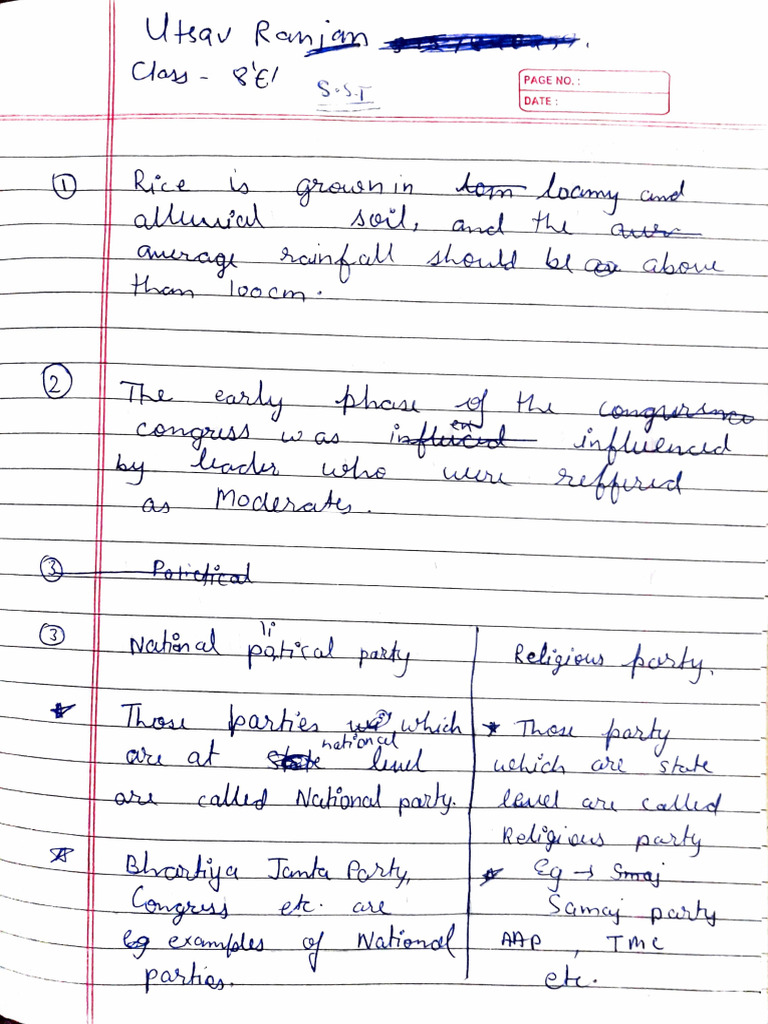 Utsav Ranjan
Class - 8'E'
S.S.T
PAGE NO. :
DATE :
① Rice is grown in loamy and
alluvial soil, and the
average rainfall should be above
than 100cm.
② The early phase of the
congress was influenced
by leader who were reffered
as Moderates.
③ Patictical
③ National political party
Those parties which
are at national level
are called National party.
Bhartiya Janta Party,
Congress etc. are
eg examples of National
parties.
Religious party.
Those party
which are state
level are called
Religious party
Eg → Smaj
Samaj party
AAP, TMC
etc.